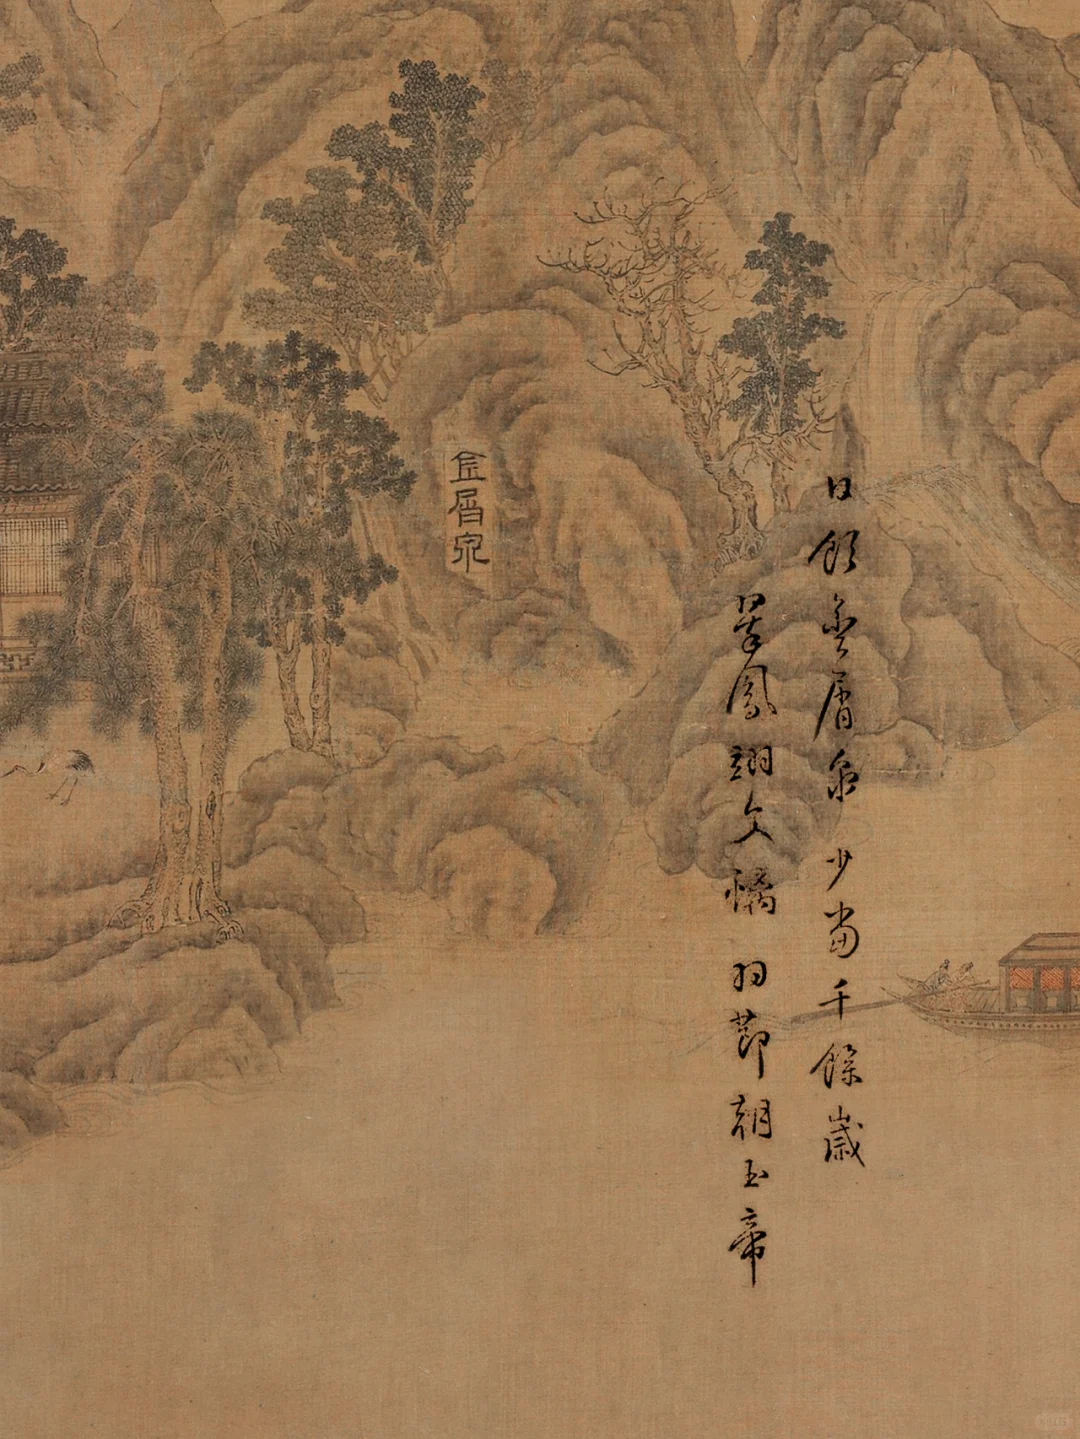 日飲金屑泉 少當千餘歲
翠鳳翊文螭 羽節朝玉帝
金屑泉